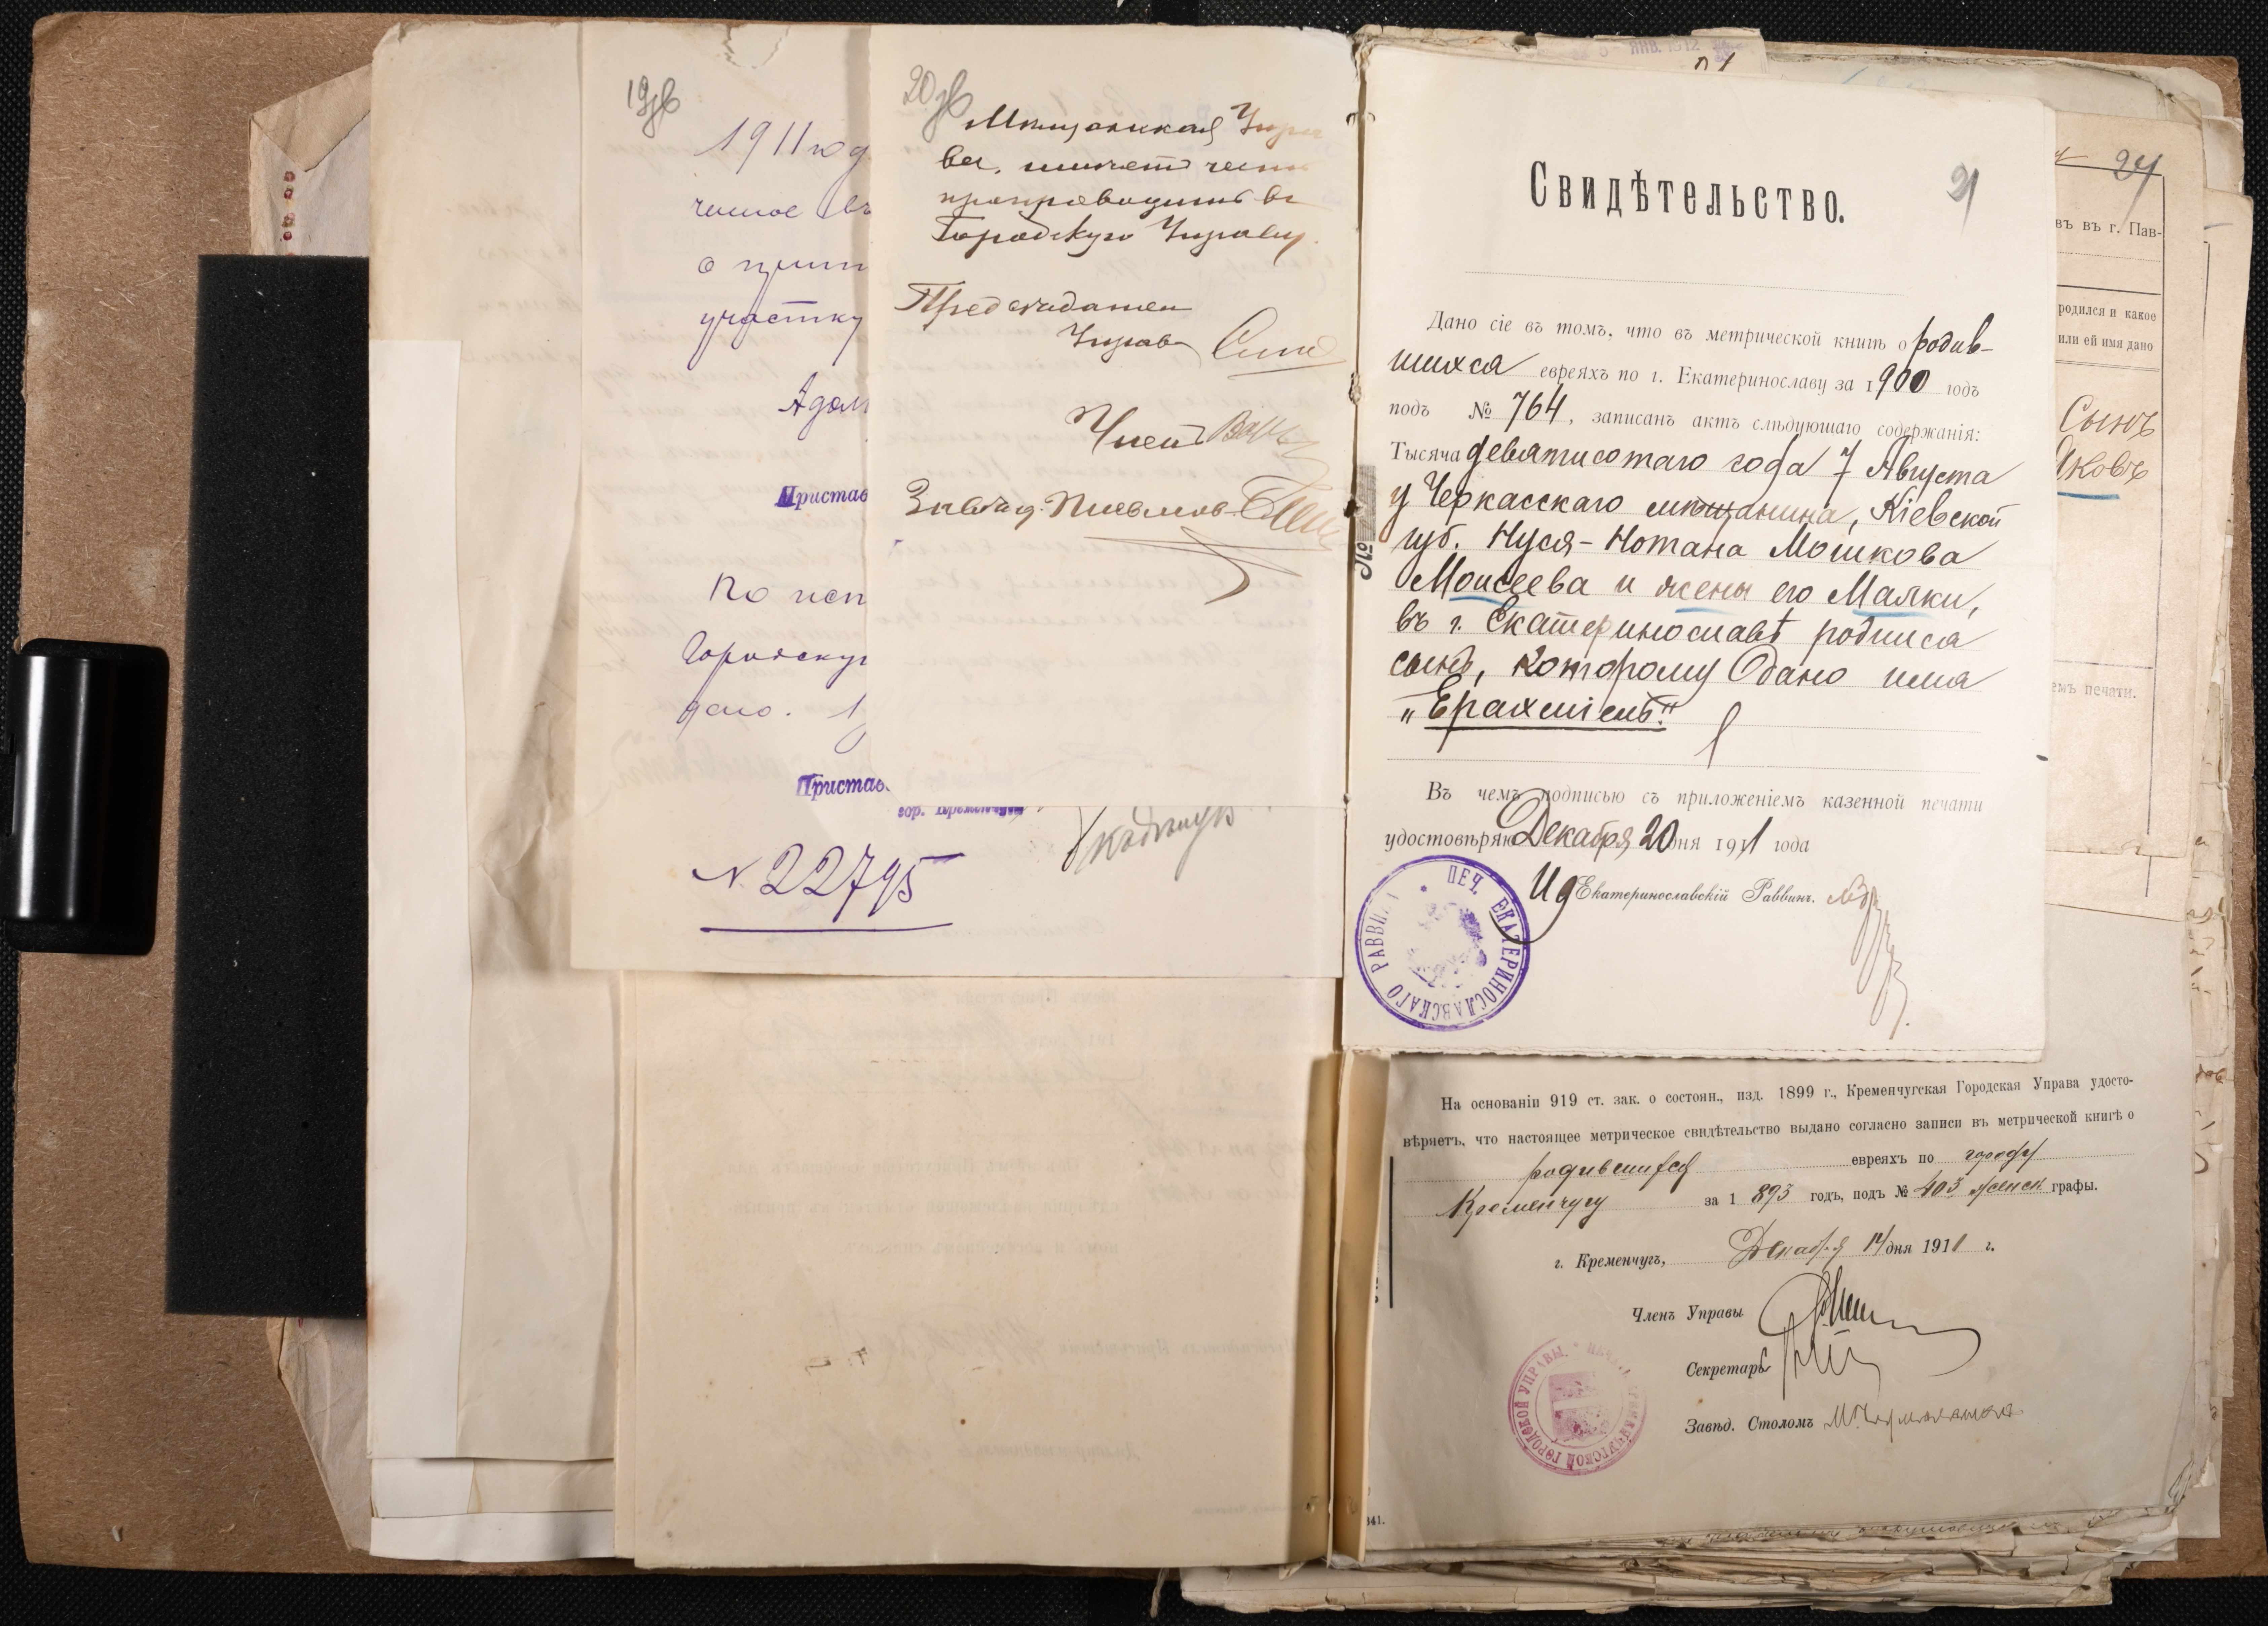 19об
1911 год
о
участку
Пристав
По исп
Городскую
Пристав
гор. Кременчуг
№ 22795
20об
Мещанская Упра
ва, имеетъ честь
препроводить въ
Городскую Управу.
Председатель
Управы
Членъ
Завѣд. Письмов.
21
Свидѣтельство.
Дано сіе въ томъ, что въ метрической книгѣ о родив-
шихся евреяхъ по г. Екатеринославу за 1900 годъ
подъ № 764, записанъ актъ слѣдующаго содержанія:
Тысяча девятисотаго года 7 Августа
у Черкасскаго мѣщанина, Кіевской
губ. Нуся-Нотана Мошкова
Моисеева и жены его Малки,
въ г. Екатеринославѣ родился
сынъ, которому дано имя
„Ерахміель."
Въ чемъ подписью съ приложеніемъ казенной печати
удостовѣряю Декабря 20 дня 1911 года
И д Екатеринославскій Раввинъ.
ПЕЧ. ЕКАТЕРИНОСЛАВСКАГО РАВВИНА
№
На основаніи 919 ст. зак. о состоян., изд. 1899 г., Кременчугская Городская Управа удосто-
вѣряетъ, что настоящее метрическое свидѣтельство выдано согласно записи въ метрической книгѣ о
родившихся евреяхъ по городу
Кременчугу за 1893 годъ, подъ № 403 женск. графы.
г. Кременчугъ, Декабря 14 дня 1911 г.
Членъ Управы
Секретарь
Завѣд. Столомъ
ПЕЧАТЬ КРЕМЕНЧУГСКОЙ ГОРОДСКОЙ УПРАВЫ.
341.
ЯНВ. 1912
24
въ въ г. Пав-
родился и какое
или ей имя дано
Сынъ
Яковъ
емъ печати.